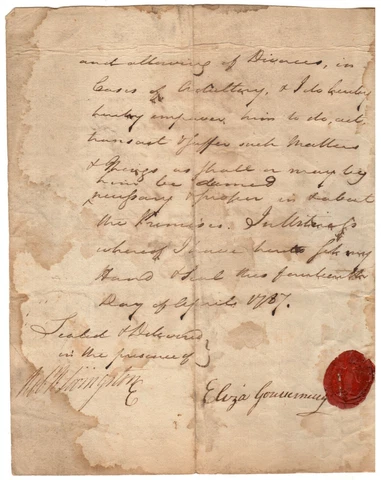 and allowing of Divorces, in
Cases of Adultery, & I do hereby
hereby empower him to do, act,
transact & suffer such Matters
& things as shall or may by
him be deemed
necessary & proper in & about
the Premises. In Witness
whereof I have hereto set my
Hand & Seal this fourteenth
Day of April 1787.
Sealed & Delivered
in the presence of
Livingston
Eliza Gouverneur